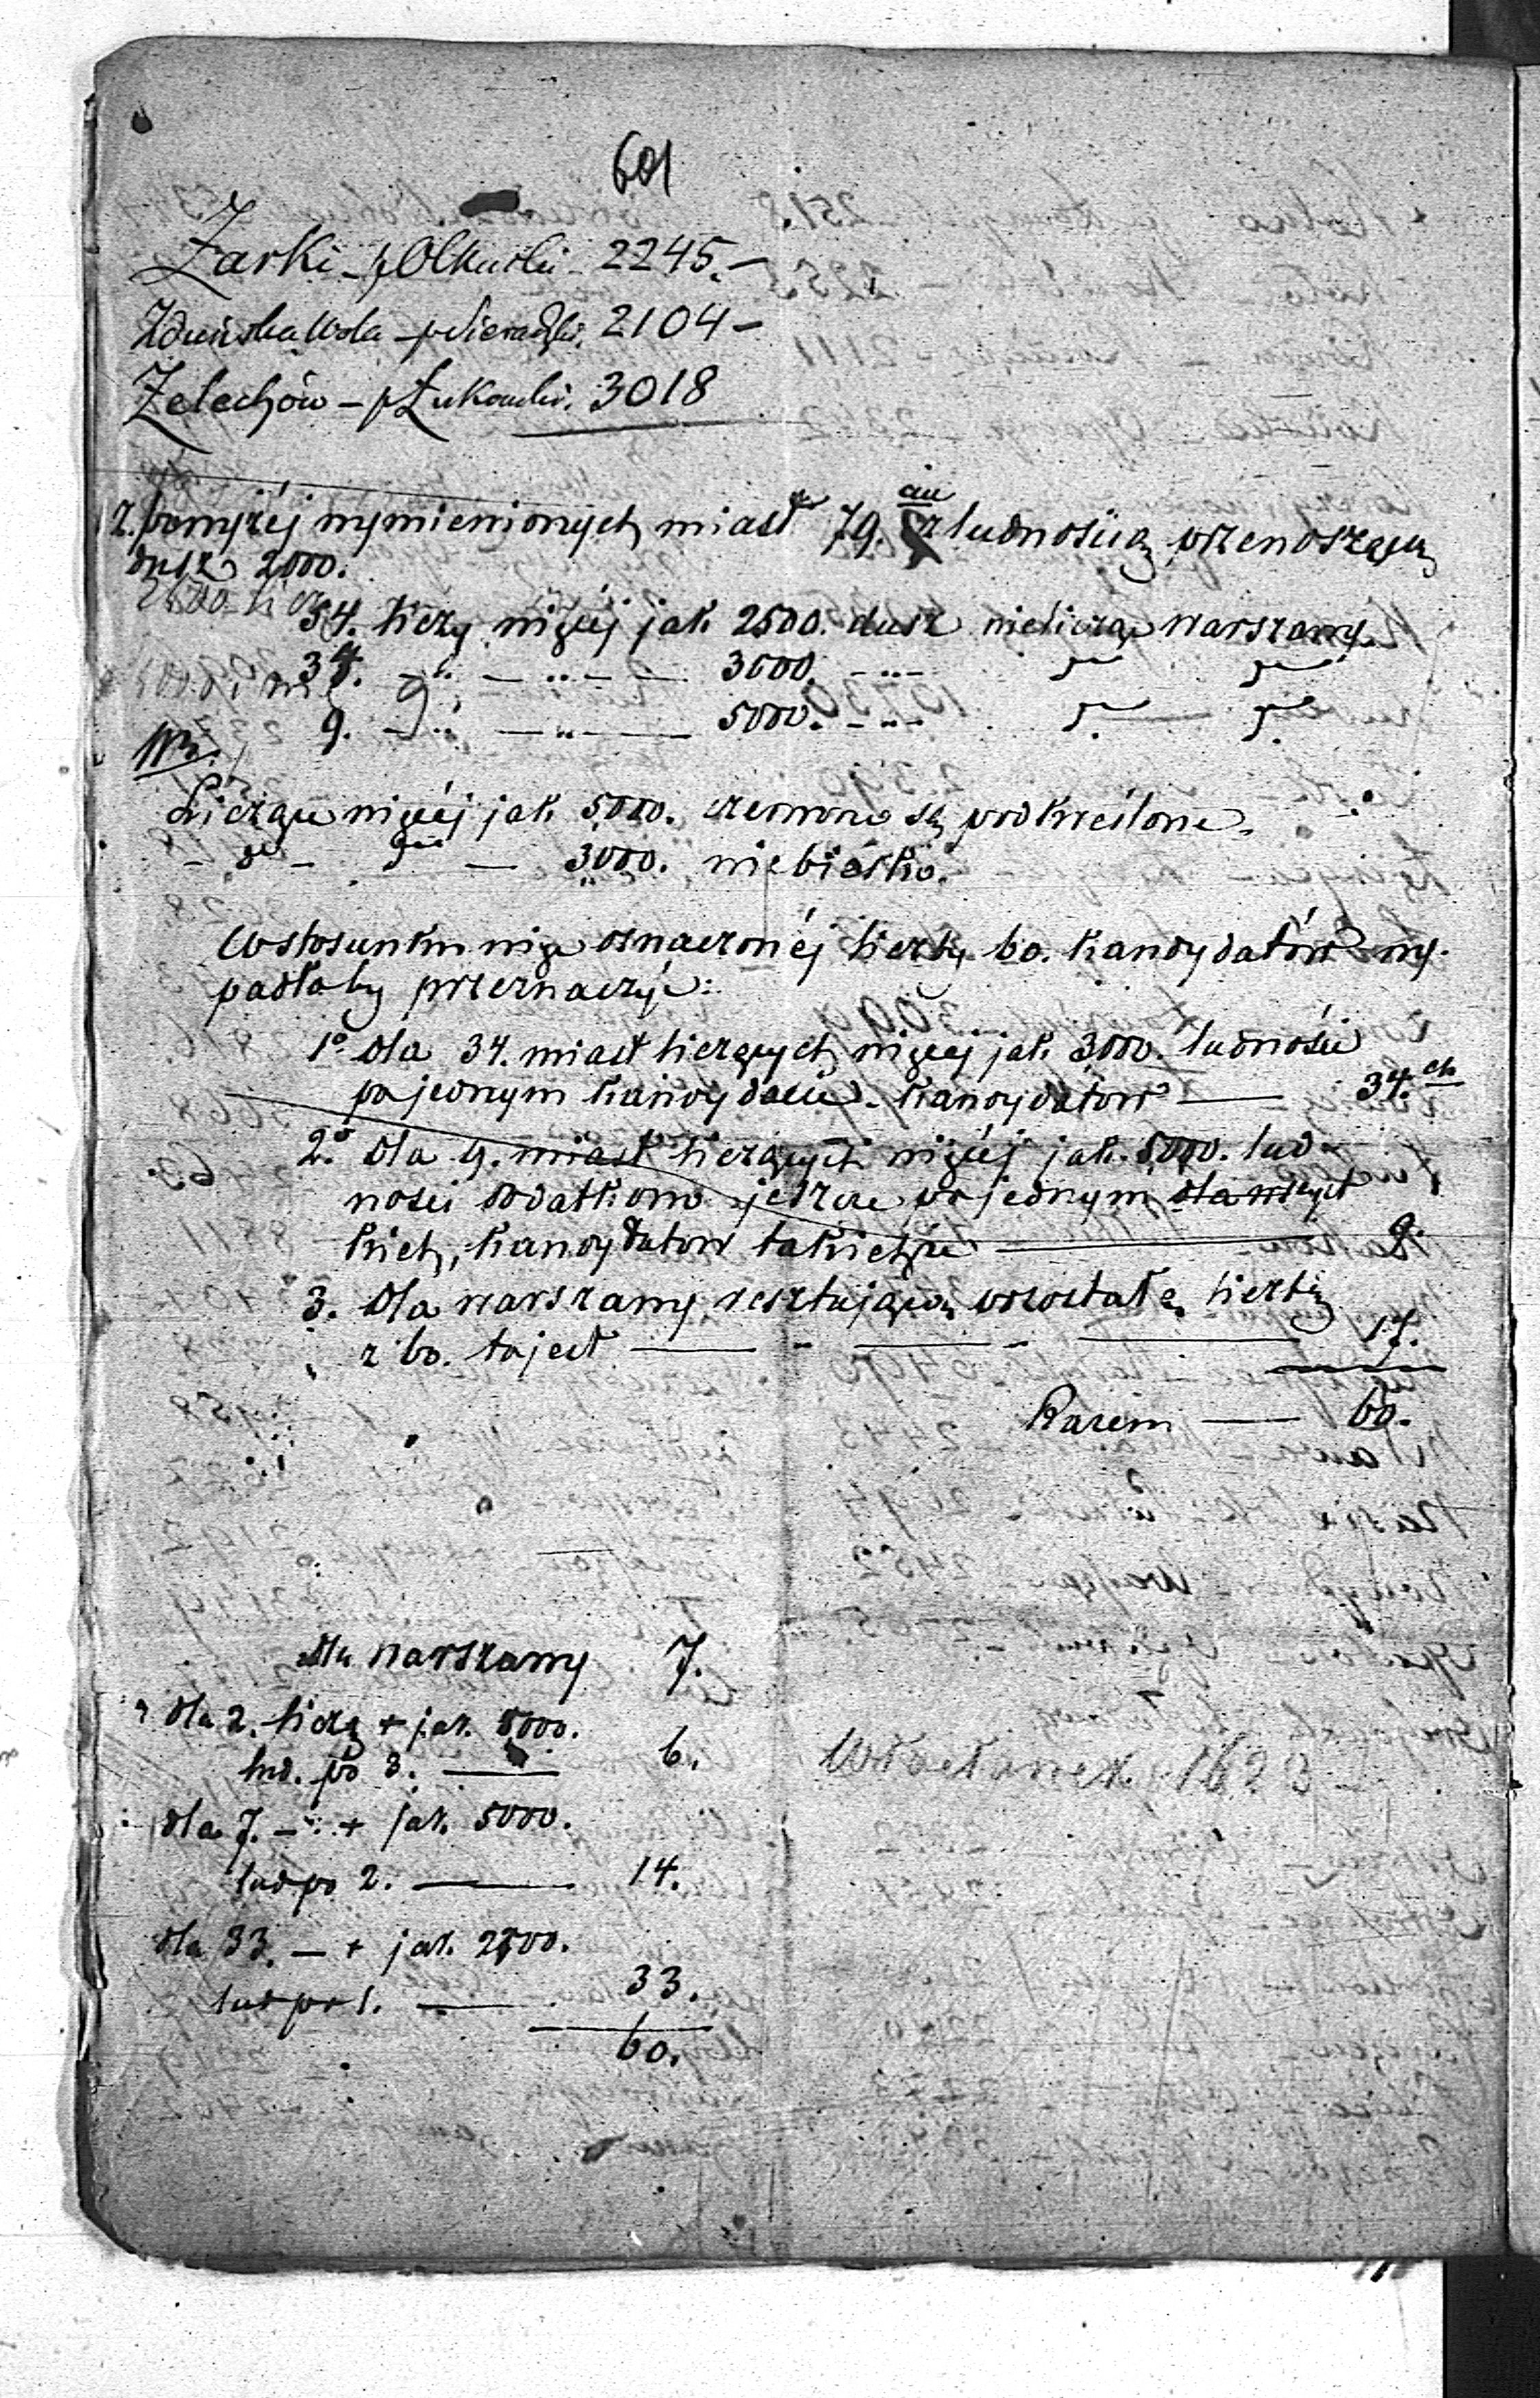 601
Żarki - p Olkuski - 2245. -
Zduńska Wola - p Sieradzki. 2104 -
Żelechów - p Łukowski. 3018
Z. pomyżéj wymienionych miast 79. ciu z ludnością przenoszącą
dusz 2000.
54. liczy więcéj jak 2500. dusz nielicząc Warszawy
34. - " - " - 3000. - " -
9. - " - " - 5000. - " -
NB.
Liczące więcéj jak 5,000. czerwono są podkreślone.
- do - do - 3000. niebiesko.
W stosunku więc oznaczonéj liczby 60. kandydatów wy-
padłoby przeznaczyć:
1o dla 34. miast liczących więcéj jak 3000. ludności
po jednym kandydacie. Kandydatów — 34.ch
2o dla 9. miast liczących więcéj jak 5000. lud-
ności dodatkowo jeszcze po jednym dla wszyst
kich, kandydatów takichże — 9.
3. dla Warszawy resztującą pozostałą liczbę
z 60. to jest — 17.
Razem — 60.
dla Warszawy 7.
dla 2. liczą + jak 8000.
lud. po 3. — 6.
dla 7. - " + jak 5000.
lud po 2. — 14.
dla 33. — + jak 2700.
lud po 1. — 33.
60.
1623